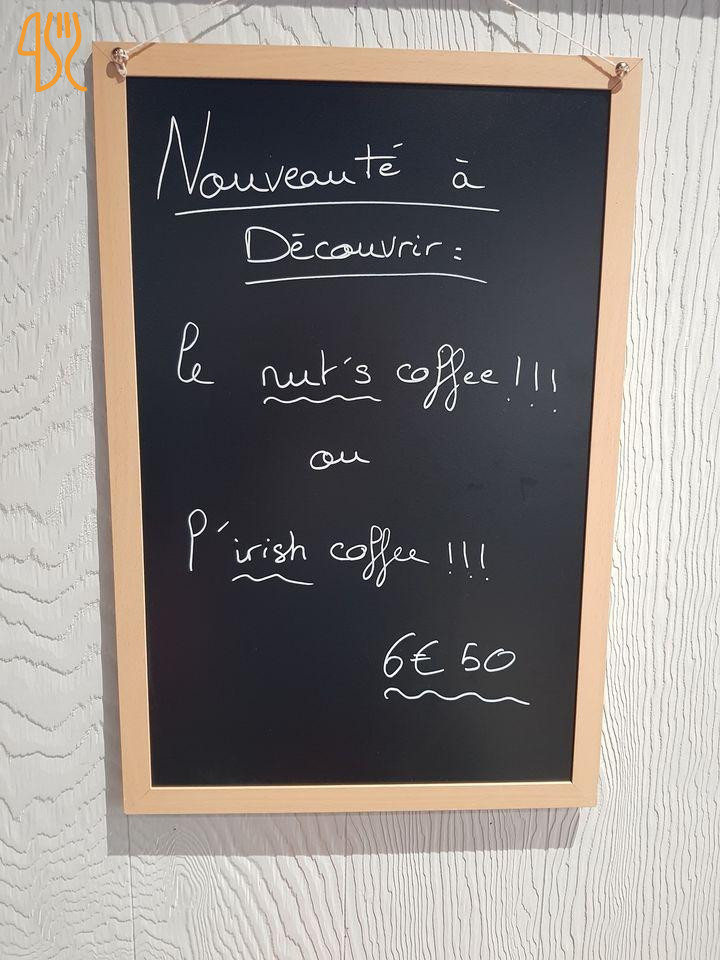 Nouveauté à
Découvrir :
le nut's coffee !!!
ou
l'irish coffee !!!
6€50